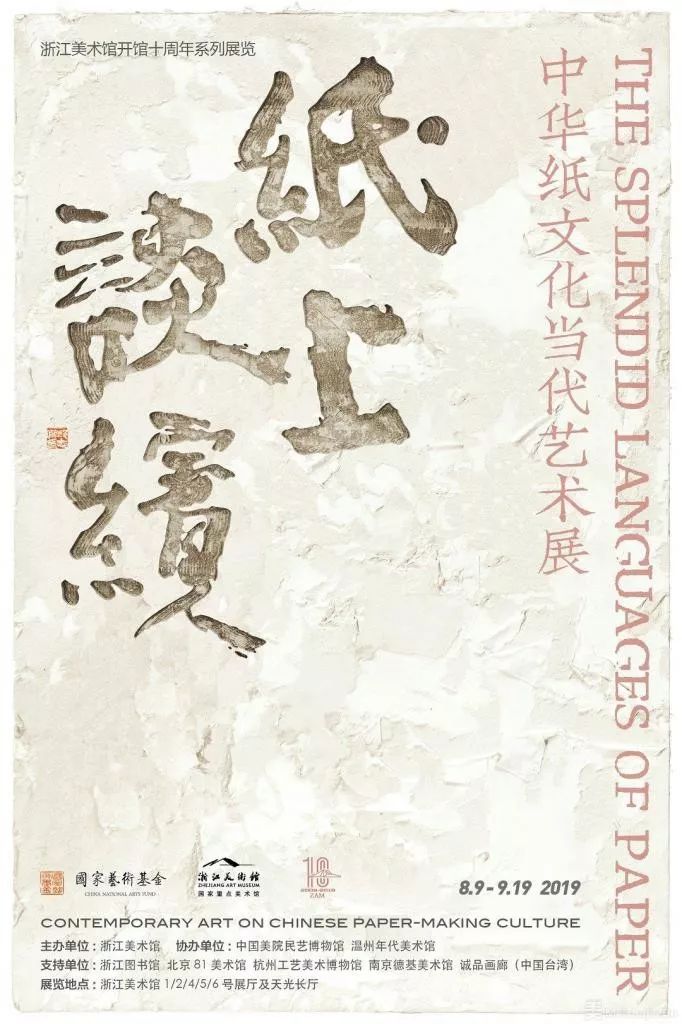 浙江美术馆开馆十周年系列展览
紙上
談繽
中华纸文化当代艺术展
THE SPLENDID LANGUAGES OF PAPER
國家藝術基金
CHINA NATIONAL ARTS FUND
浙江美術館
ZHEJIANG ART MUSEUM
国家重点美术馆
10
ZAM
8.9-9.19 2019
CONTEMPORARY ART ON CHINESE PAPER-MAKING CULTURE
主办单位：浙江美术馆 协办单位：中国美院民艺博物馆 温州年代美术馆
支持单位：浙江图书馆 北京 81 美术馆 杭州工艺美术博物馆 南京德基美术馆 诚品画廊（中国台湾）
展览地点：浙江美术馆 1/2/4/5/6 号展厅及天光长厅